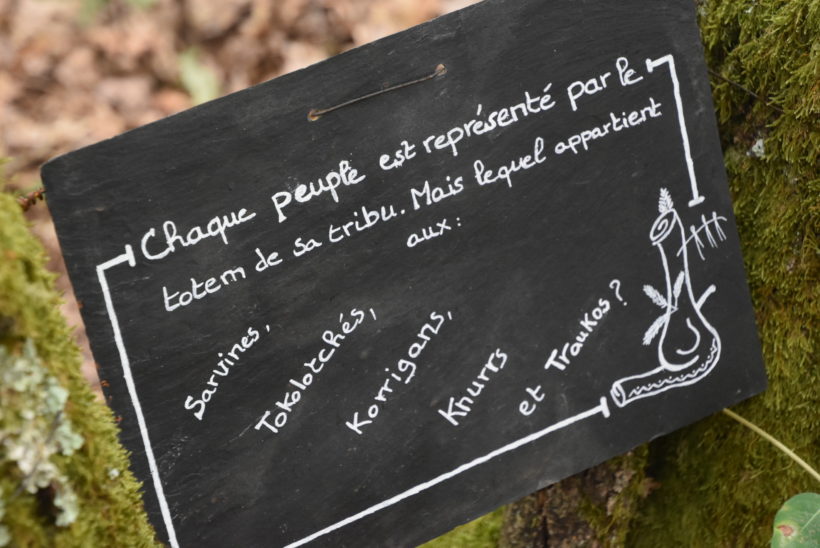 Chaque peuple est représenté par le
totem de sa tribu. Mais lequel appartient
aux :
Sarvines,
Tokolotchés,
Korrigans,
Knurrs
et Traukos ?